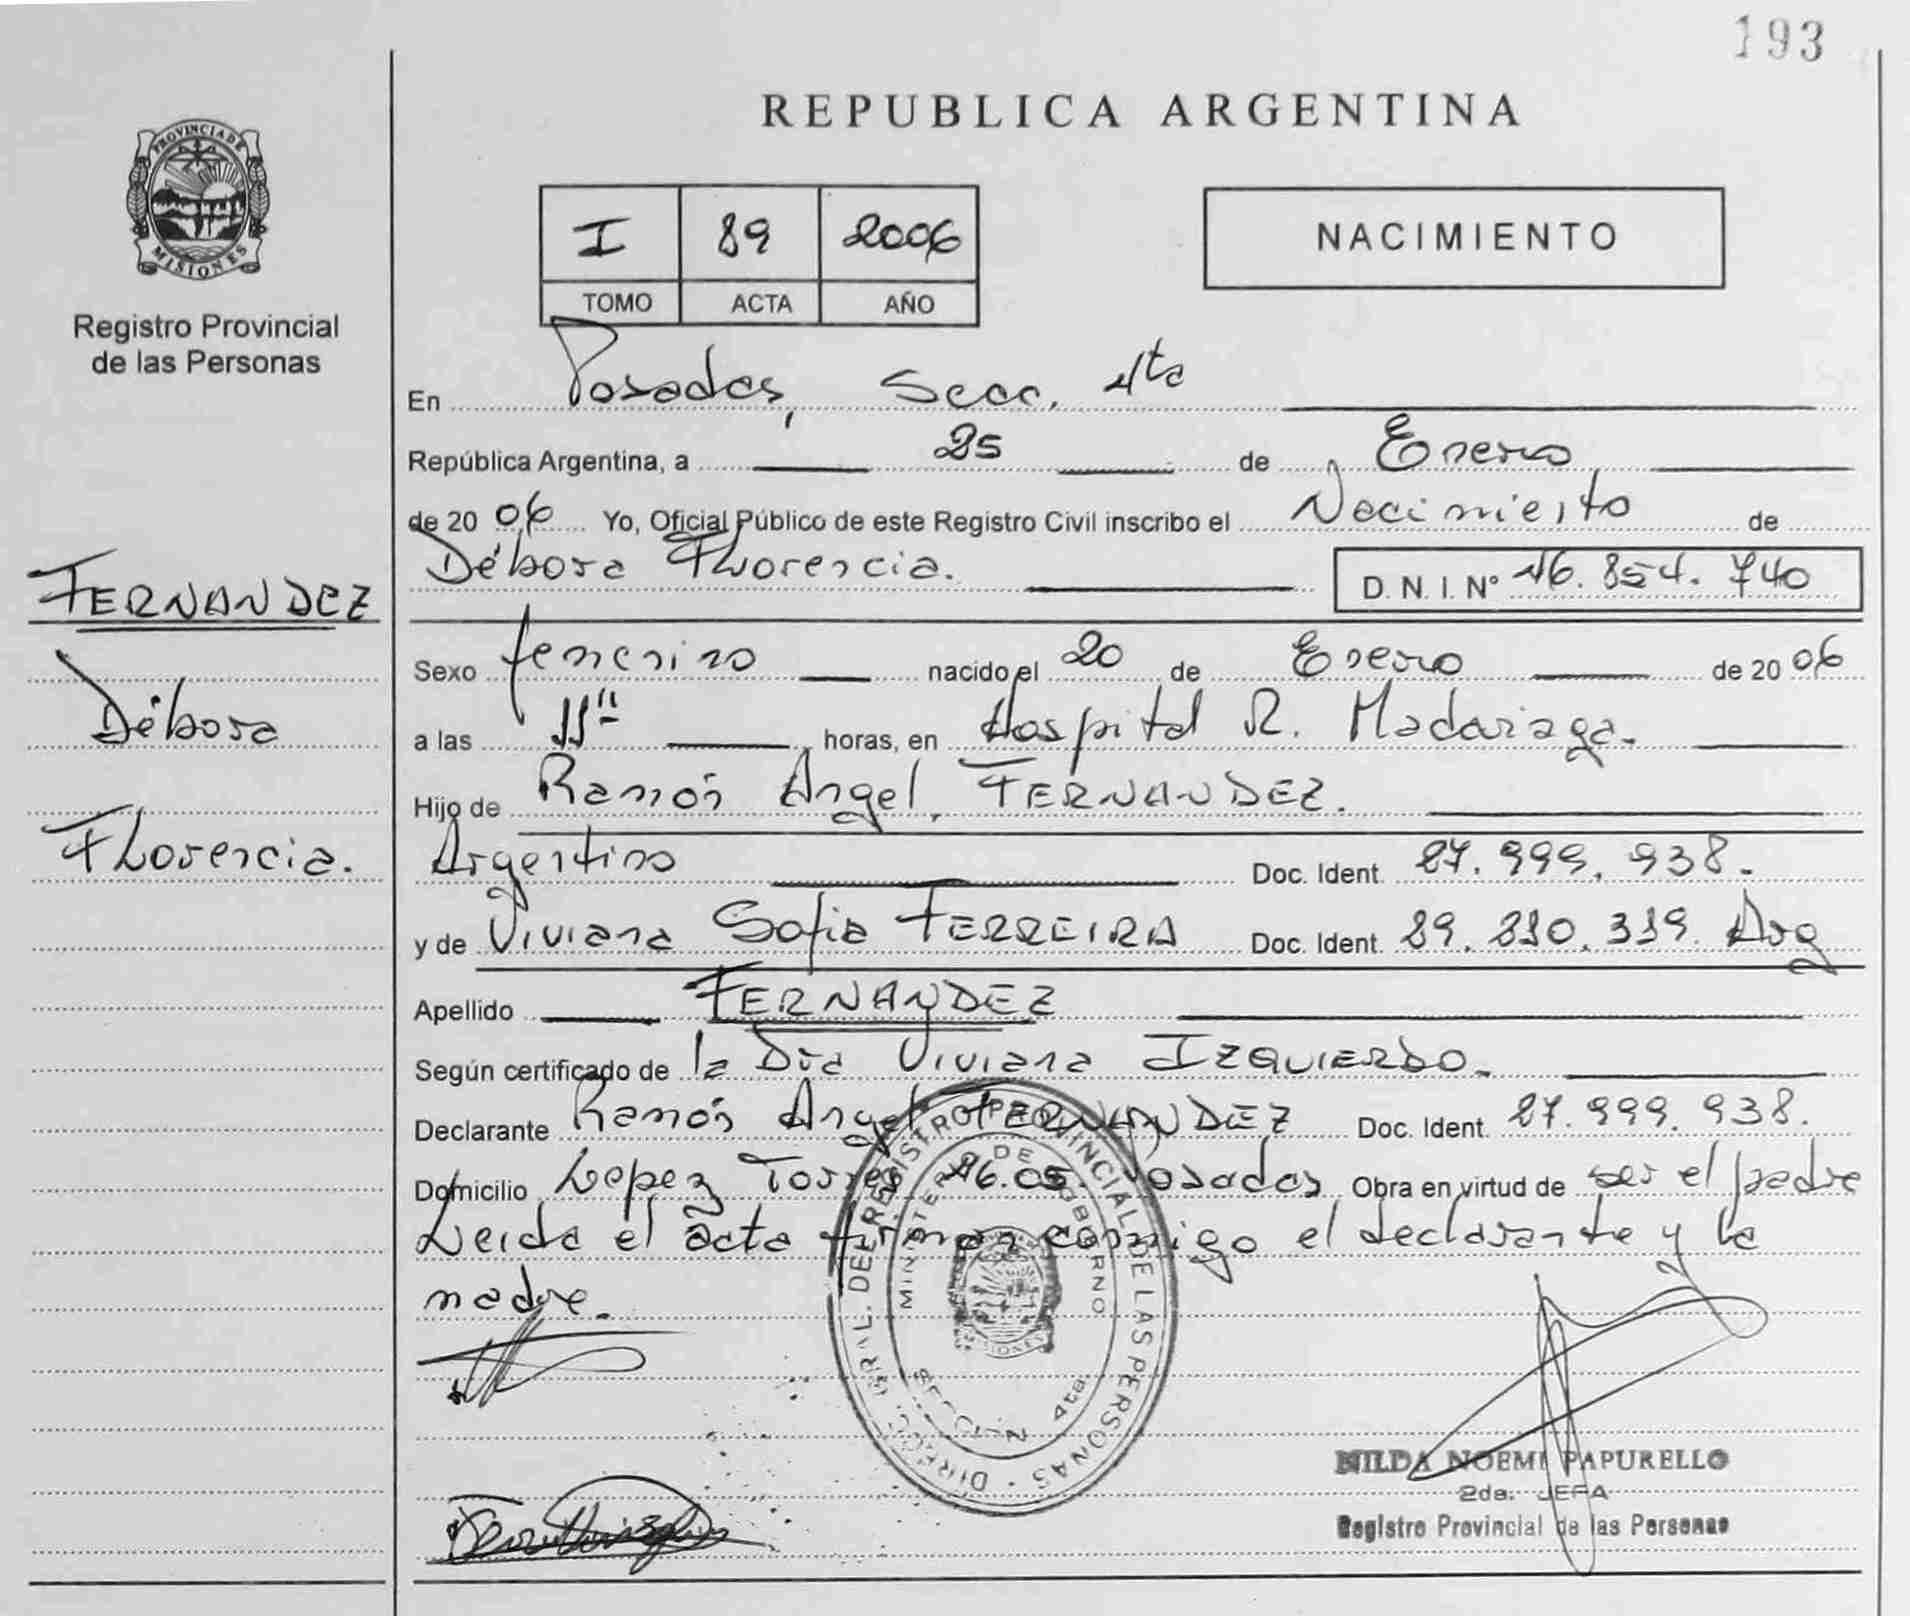 193
REPUBLICA ARGENTINA
PROVINCIA DE
MISIONES
Registro Provincial
de las Personas
I 89 2006
TOMO ACTA AÑO
NACIMIENTO
En Posadas, Secc. 4ta
República Argentina, a 25 de Enero
de 2006 Yo, Oficial Público de este Registro Civil inscribo el Nacimiento de
Débora Florencia. D. N. I. N° 46.854.740
FERNANDEZ
Débora
Florencia.
Sexo femenino nacido el 20 de Enero de 2006
a las 11 horas, en Hospital R. Madariaga.
Hijo de Ramón Angel, FERNANDEZ.
Argentino Doc. Ident. 27.999.938.
y de Viviana Sofia FERREIRA Doc. Ident. 29.810.319. Arg
Apellido FERNANDEZ
Según certificado de la Dra Viviana IZQUIERDO.
Declarante Ramón Angel FERNANDEZ Doc. Ident. 27.999.938.
Domicilio Lopez Torres 46.05. Posadas Obra en virtud de ser el padre
Leida el acta firman conmigo el declarante y la
madre.
DIREC. GRAL. DEL REGISTRO PROVINCIAL DE LAS PERSONAS
MINISTERIO DE GOBIERNO
SECCION 4ta
NILDA NOEMI PAPURELLO
2da. JEFA
Registro Provincial de las Personas